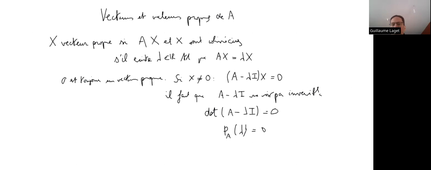 Vecteurs et valeurs propres de A
X vecteur propre si AX et X sont colinéaires
s'il existe λ ∈ tq AX = λX
0 est toujours un vecteur propre. Si X ≠ 0: (A - λI)X = 0
il faut que A - λI ne soit pas inversible
det(A - λI) = 0
P_A(λ) = 0
Guillaume Laget